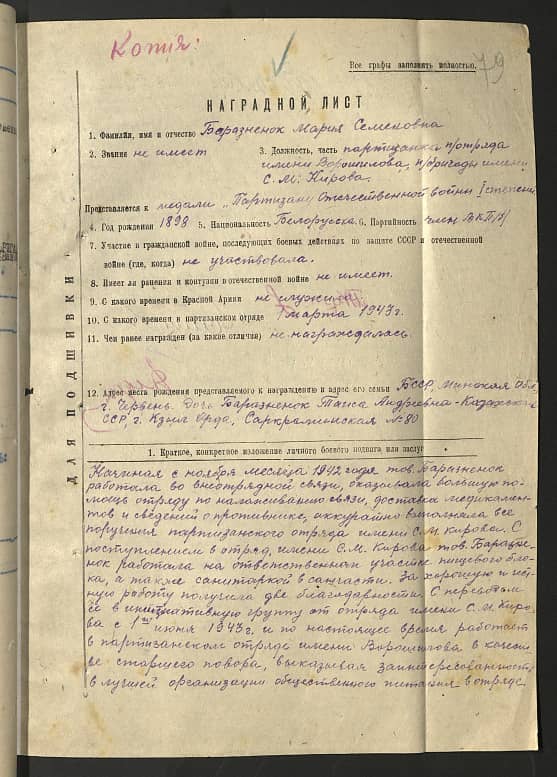 Копия:
79
Все графы заполнять полностью.
НАГРАДНОЙ ЛИСТ
1. Фамилия, имя и отчество Баразненок Мария Семеновна
2. Звание не имеет
3. Должность, часть партизанка п/отряда
имени Ворошилова, п/бригады имени
С.М. Кирова.
Представляется к медали „Партизану Отечественной войны" I степени
4. Год рождения 1898 5. Национальность Белоруска 6. Партийность член ВКП/б/
7. Участие в гражданской войне, последующих боевых действиях по защите СССР и отечественной
войне (где, когда) не участвовала.
8. Имеет ли ранения и контузии в отечественной войне не имеет.
9. С какого времени в Красной Армии не служила
10. С какого времени в партизанском отряде 1 марта 1943 г.
11. Чем ранее награжден (за какие отличия) не награждалась.
12. Адрес места рождения представляемого к награждению и адрес его семьи БССР, Минская обл.
г. Червень. Дочь Баразненок Таиса Андреевна - Казахская
ССР, г. Кзыл Орда, № 80
ДЛЯ ПОДШИВКИ
1. Краткое, конкретное изложение личного боевого подвига или заслуг
Начиная с ноября месяца 1942 года тов. Баразненок
работала во внеотрядной связи, оказывала большую по-
мощь отряду по налаживанию связи, доставке медикамен-
тов и сведений о противнике, аккуратно выполняла все
поручения партизанского отряда имени С.М. Кирова. С
поступлением в отряд имени С.М. Кирова тов. Баразне-
нок работала на ответственном участке пищевого бло-
ка, а также санитаркой в санчасти. За хорошую и
работу получила две благодарности. С переводом
её в инициативную группу от отряда имени С.М. Киро-
ва с 1го июня 1943 г. и по настоящее время работает
в партизанском отряде имени Ворошилова в качест-
ве старшего повара, выказывая заинтересованность
в лучшей организации общественного питания в отряде